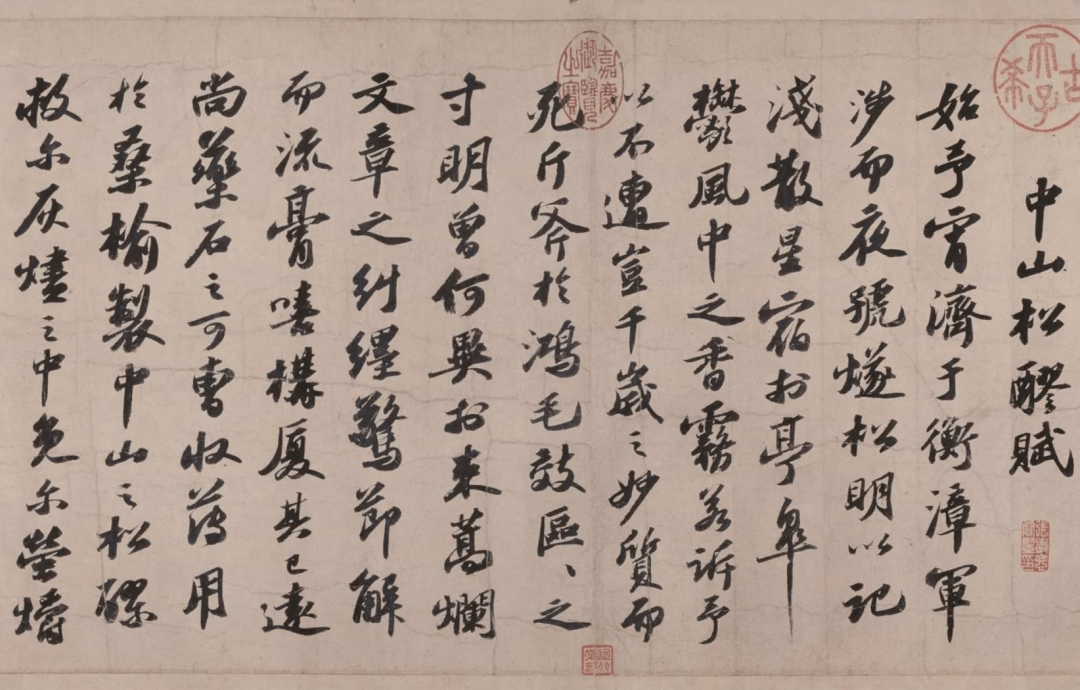 中山松醪賦
始予宵濟于衡漳軍
涉而夜號燧松明以記
淺散星宿於亭皐
鬱風中之香霧若訴予
以不遭豈千歲之妙質而
死斤斧於鴻毛效區々之
寸明曾何異於束蒿爛
文章之糾纏驚節解
而流膏嘻構厦其已遠
尚藥石之可曹收薄用
於桑榆製中山之松醪
救尓灰燼之中免尓螢爝
古希天子
嘉慶御覽之寶